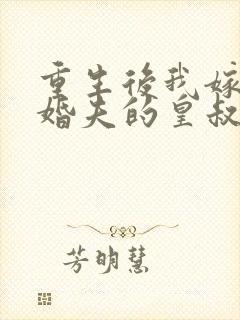 重生後我嫁
婚夫的皇叔
芳明慧